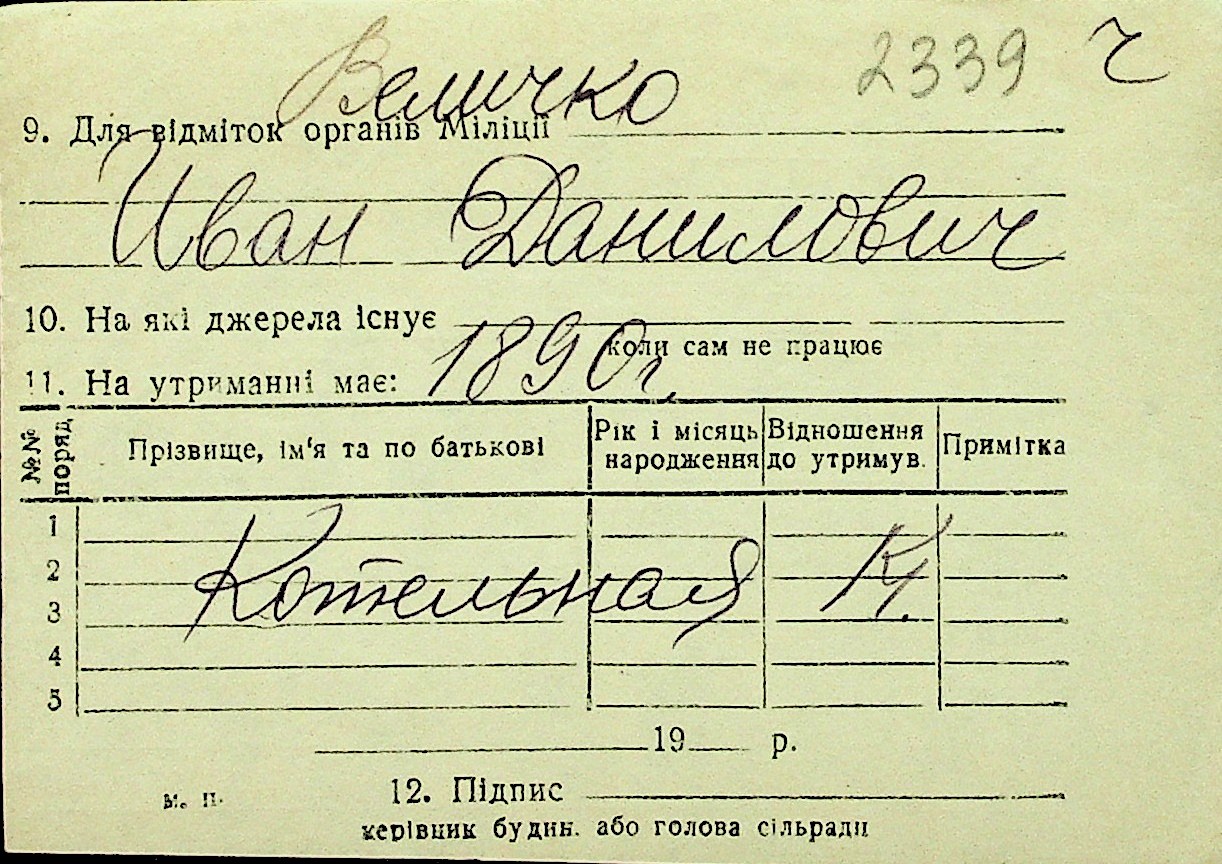 Величко 2339 ч
9. Для відміток органів Міліції
Иван Данилович
10. На які джерела існує
коли сам не працює
1890 г.
11. На утриманні має:
№№ поряд. Прізвище, ім'я та по батькові Рік і місяць народження Відношення до утримув. Примітка
1
2
Котельная К.
3
4
5
19 р.
м. п. 12. Підпис
керівник будин. або голова сільради